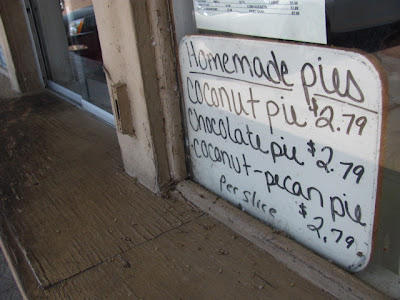 Homemade pies
coconut pie $2.79
chocolate pie $2.79
coconut-pecan pie
per slice $2.79